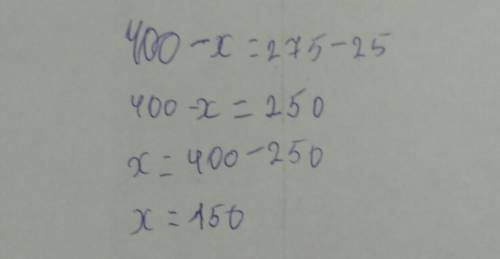 400-x=275-25
400-x=250
x=400-250
x=150